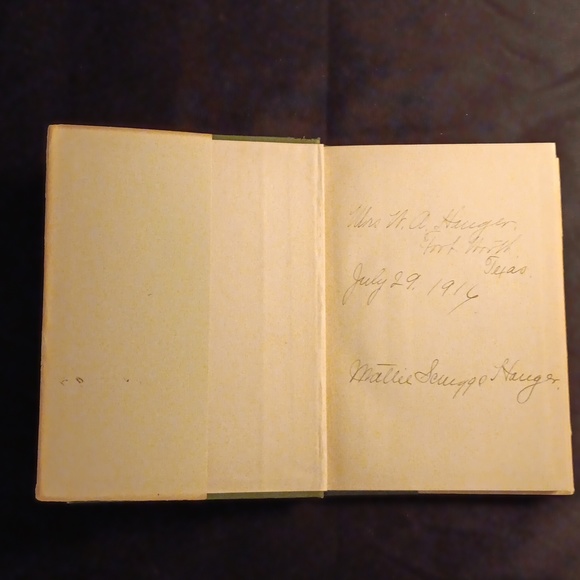 Mrs W. A. Hanger.
Fort Worth
Texas.
July 29. 1916
Mattie Scruggs Hanger.